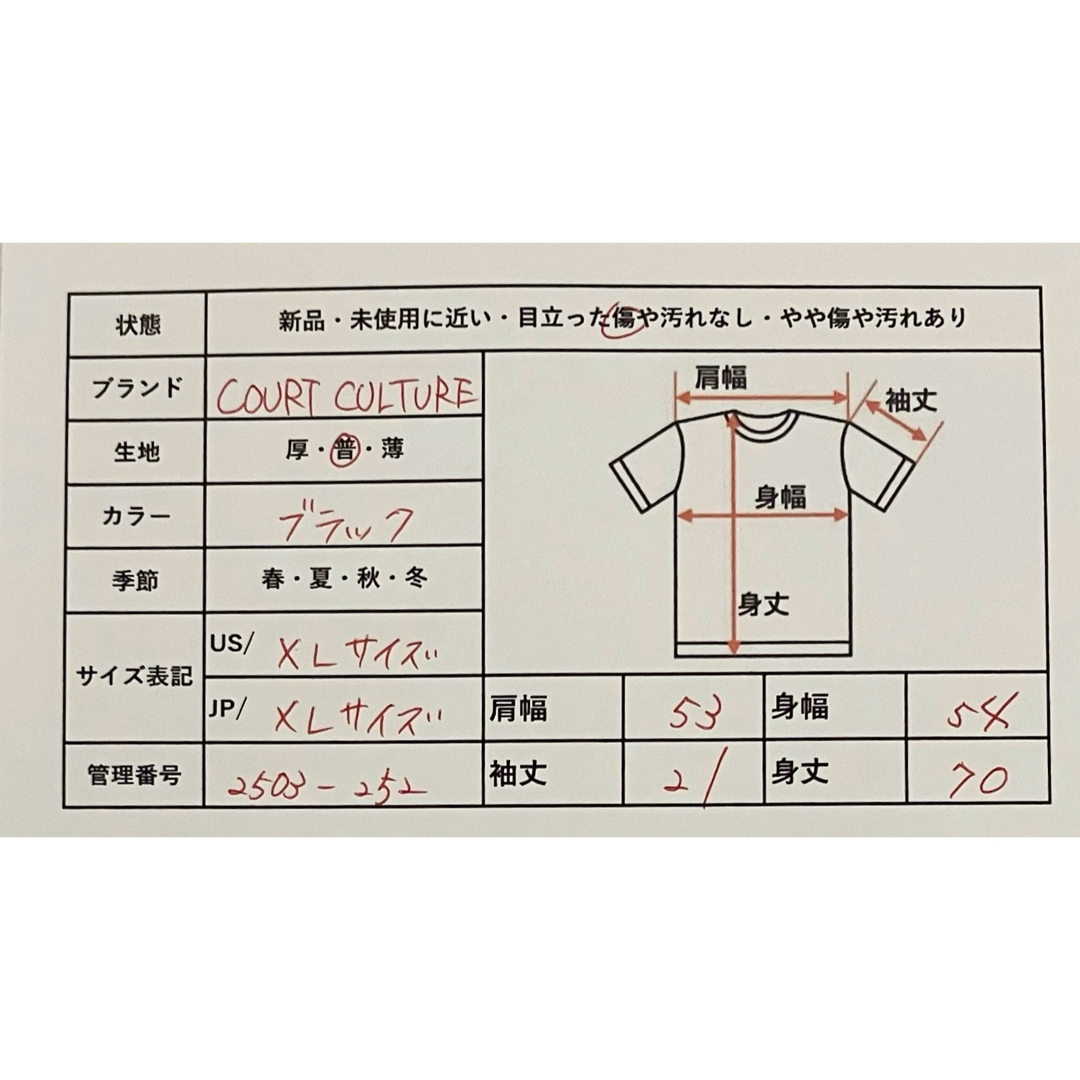 状態 新品・未使用に近い・目立った傷や汚れなし・やや傷や汚れあり
ブランド COURT CULTURE
生地 厚・普・薄
カラー ブラック
季節 春・夏・秋・冬
サイズ表記
US/ XLサイズ
JP/ XLサイズ
管理番号 2503-252
肩幅
袖丈
身幅
身丈
肩幅 53 身幅 54
袖丈 21 身丈 70